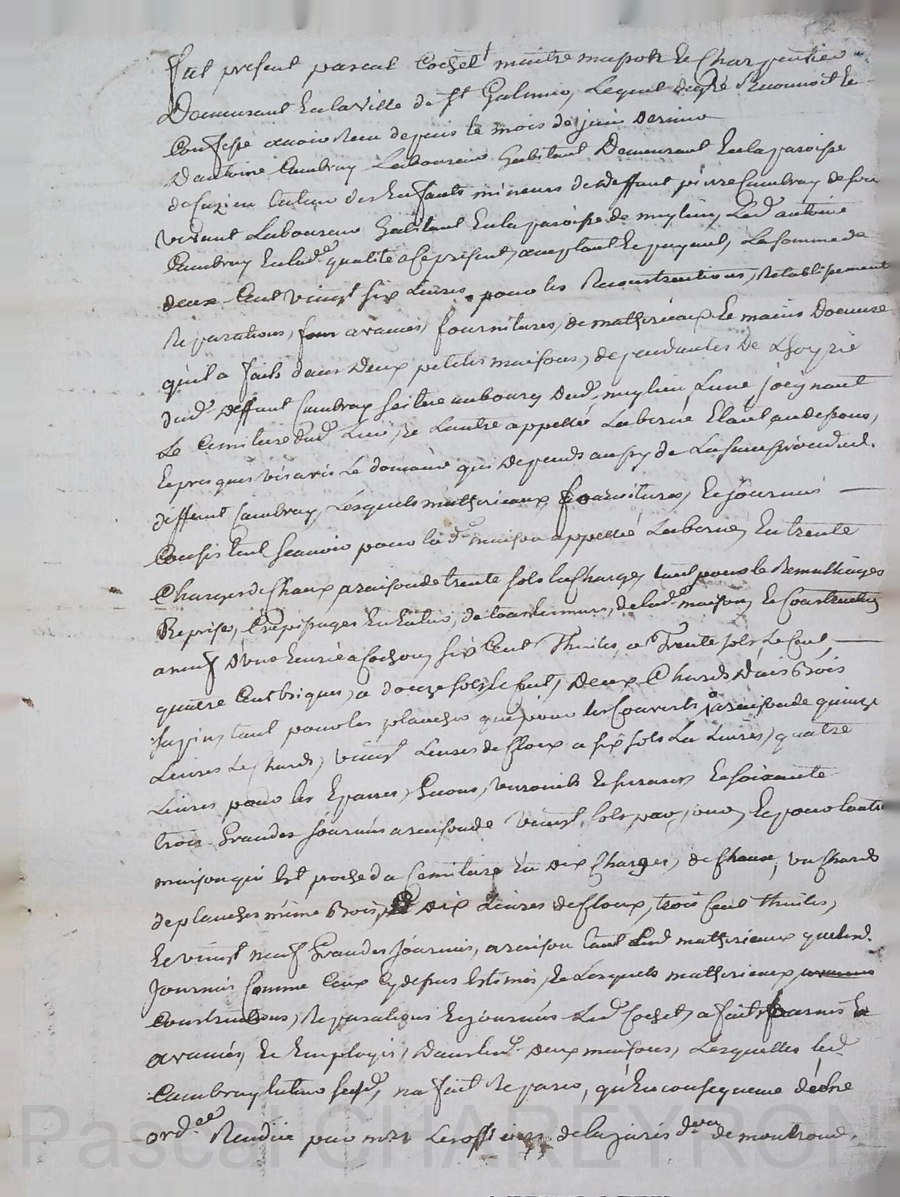 fut présent pascal Cochet maitre masson et Charpentier
Demeurant En la ville de St Galmier, Lequel de gré Reconnoit et
Confesse avoir Receu depuis le mois de juin dernier
D'antoine Cambray Laboureur habitant Demeurant En la paroisse
de Cuzieu tuteur des Enfants mineurs de deffunt pierre Cambray de son
vivant Laboureur habitant En la paroisse de meylieu, Led. antoine
Cambray En lad. qualité a ce présent, acceptant Et payant, La somme de
deux Cent vingt six Livres, pour les Reconstructions, Retablissement
Reparations, avances, fournitures, de mathereaux Et mains Doeuvre
qu'il a faits dans Deux petites maisons, dependantes De L'hoyrie
dud. deffunt Cambray au bourg dud. meylieu, L'une joignant
Le Cemitiere dud. Lieu, et L'autre appellée Laberne Etant au dessous,
Et presques vis a vis Le domaine qui depends aussy de La succession dud.
deffunt Cambray, Lesquels mathereaux, fournitures, Et journées
Consistant scavoir pour la de. maison appellée Laberne, En trente
Charges de Chaux, a raison de trente sols la Charge, tant pour le
Reprise, Crepissages En Entier, de tous les murs, de lad. maison, Et Construction
a neuf D'une Ecurie a Cochon, six Cent Thuiles, a Trente sols Le Cent
quatre Cent briques, a douze sols le Cent, Deux Chards D'ais Bois
sapin, tant pour les planchers que pour les Couverts a raison de quinze
Livres Le Chard, vingt Livres de Cloux a six sols La Livre, quatre
Livres pour les Eparres, Gons, verouils Et serrures, Et soixante
trois Grandes journées a raison de vingt sols par jour, Et pour l'autre
maison qui Est proche du Cemitiere En Dix Charges, de Chaux, un Chard
de planches même Bois, Dix Livres de Cloux, trois Cent thuiles,
Et vingt neuf Grandes journées, a raison tant Lesd. mathereaux que lesd.
journées Comme Ceux Cy dessus Estimés, Et Lesquels mathereaux
Constructions, Reparations Et journées Led. Cochet, a fait fournis Et
avancées, Et Employés, dans lesd. Deux maisons, Lesquelles led.
Cambray tuteur susd., n'a fait Reparer, qu'En consequence d'Echre
ordce Rendue par mrs Les officiers de la jurisdon de montrond,
Pascal CHAREYRON